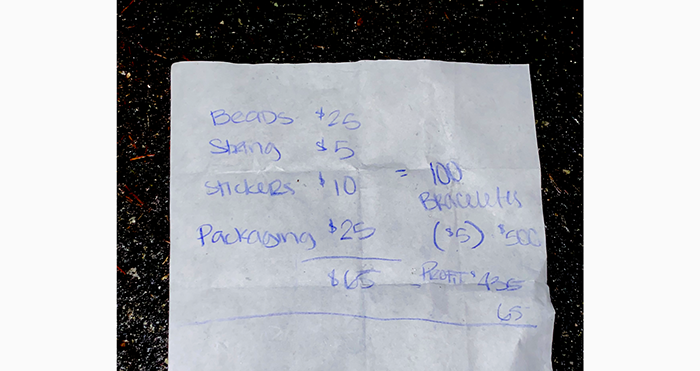 Beads $25
String $5
Stickers $10 = 100
Bracelets
Packaging $25 ($5) $500
$65 - Profit $435
65